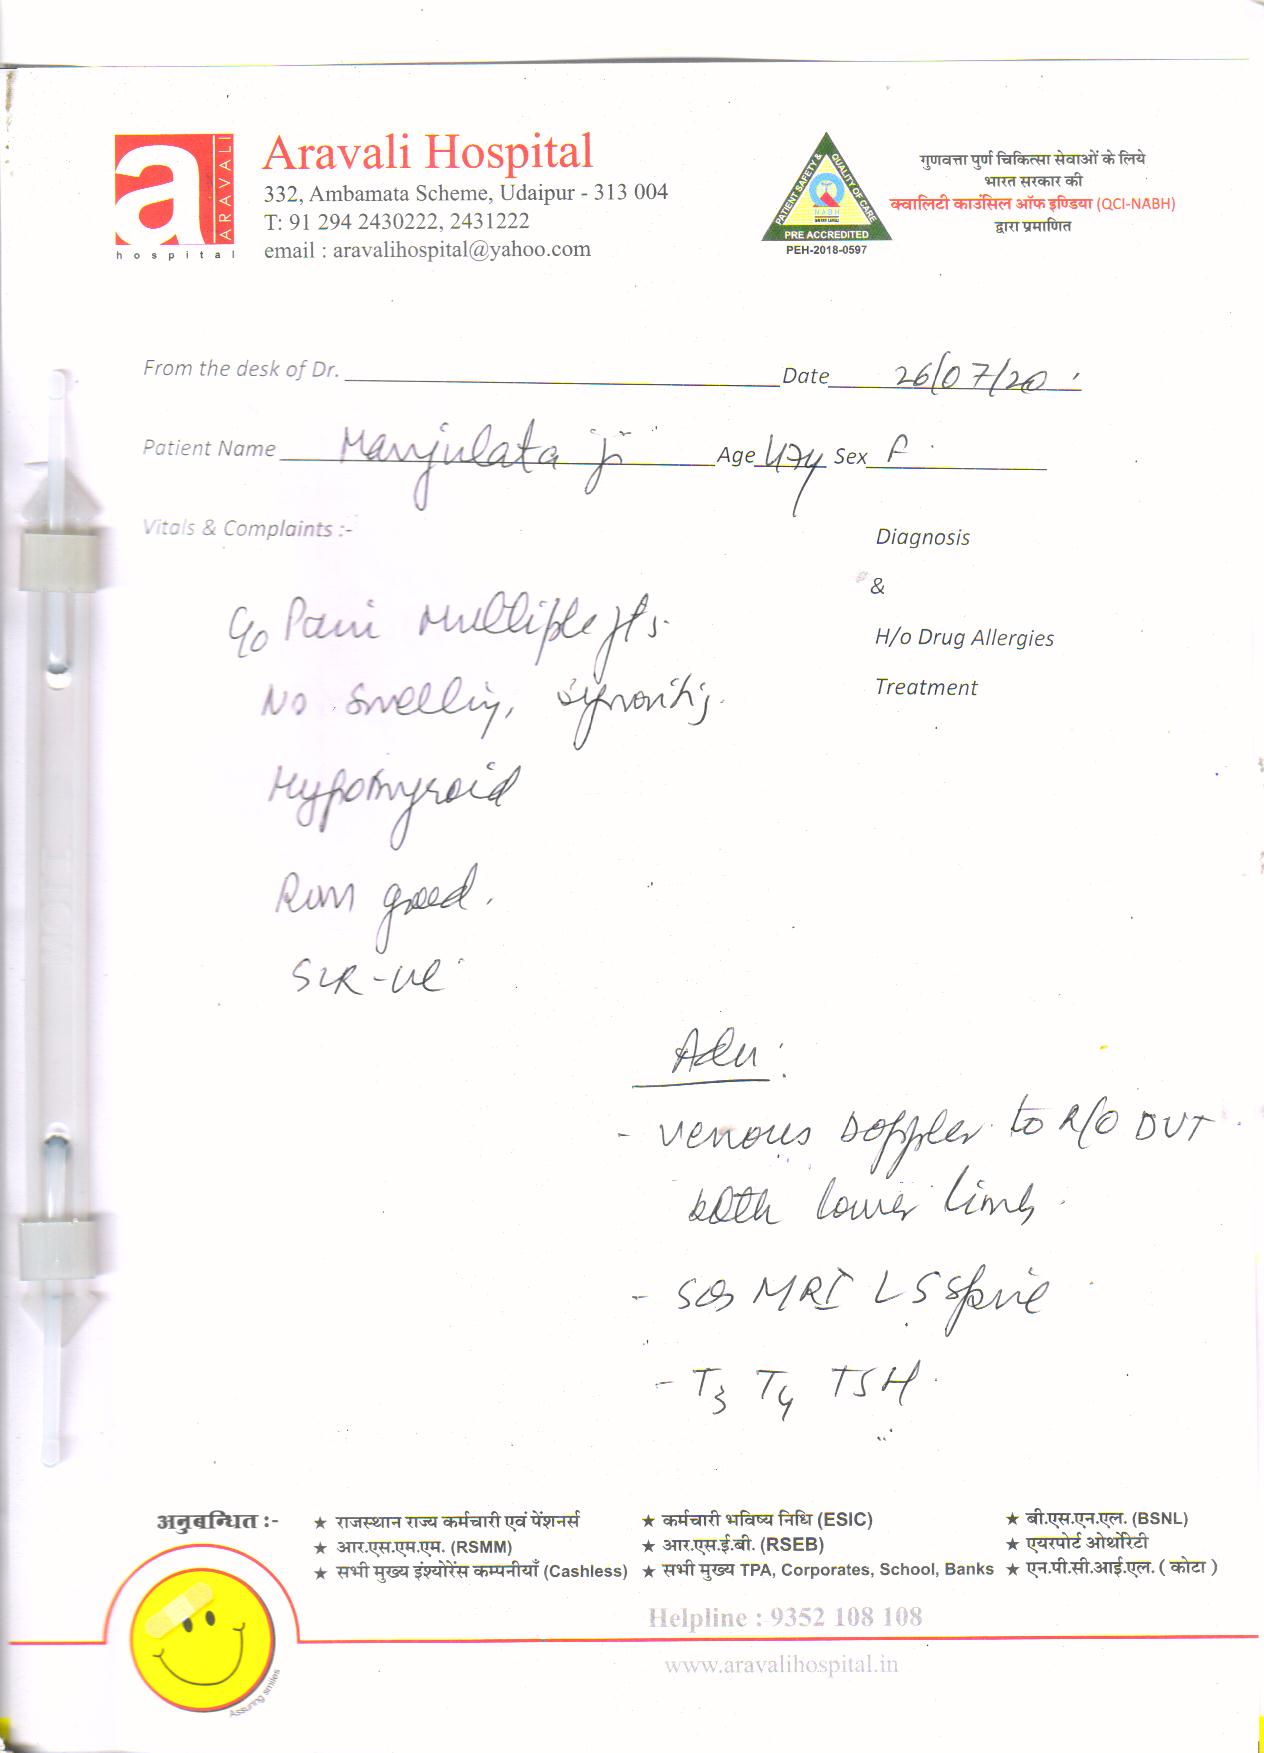 a ARAVALI
hospital
Aravali Hospital
332, Ambamata Scheme, Udaipur - 313 004
T: 91 294 2430222, 2431222
email : aravalihospital@yahoo.com
PATIENT SAFETY & QUALITY OF CARE
NABH
PRE ACCREDITED
PEH-2018-0597
गुणवत्ता पुर्ण चिकित्सा सेवाओं के लिये
भारत सरकार की
क्वालिटी काउंसिल ऑफ इण्डिया (QCI-NABH)
द्वारा प्रमाणित
From the desk of Dr. Date 26/07/20
Patient Name Manjulata ji Age 47y Sex F
Vitals & Complaints :-
Diagnosis
&
H/o Drug Allergies
Treatment
C/o Pain Multiple Jts.
No Swelling, Synovitis
Hypothyroid
Rom good.
SLR -ve
Adv:
- Venous Doppler to R/O DVT
both lower limbs
- SOS MRI L S Spine
- T3 T4 TSH
अनुबन्धित :-
★ राजस्थान राज्य कर्मचारी एवं पेंशनर्स
★ आर.एस.एम.एम. (RSMM)
★ सभी मुख्य इंश्योरेंस कम्पनीयाँ (Cashless)
★ कर्मचारी भविष्य निधि (ESIC)
★ आर.एस.ई.बी. (RSEB)
★ सभी मुख्य TPA, Corporates, School, Banks
★ बी.एस.एन.एल. (BSNL)
★ एयरपोर्ट ओथोरिटी
★ एन.पी.सी.आई.एल. ( कोटा )
Helpline : 9352 108 108
www.aravalihospital.in
Assuring smiles